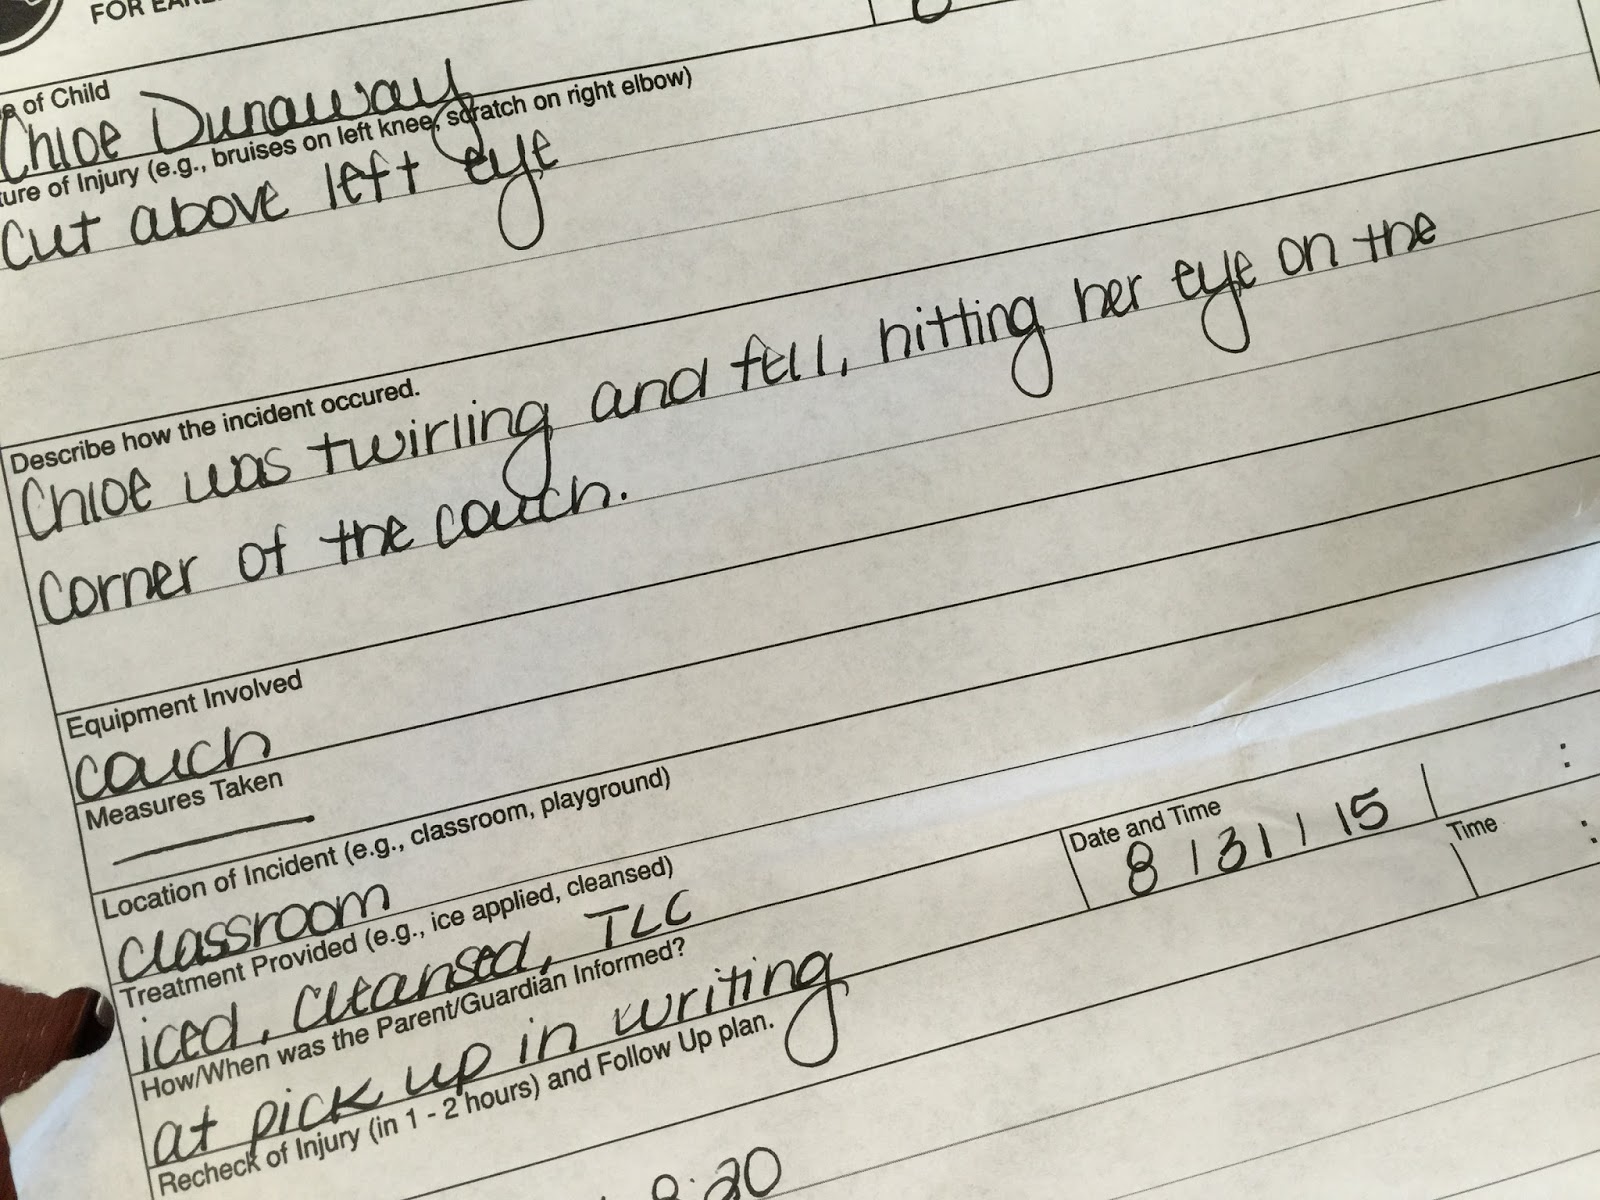 FOR
of Child
Chloe Dunaway
of Injury (e.g., bruises on left knee, scratch on right elbow)
cut above left eye
Describe how the incident occured.
Chloe was twirling and fell, hitting her eye on the
corner of the couch.
Equipment Involved
couch
Measures Taken
Location of Incident (e.g., classroom, playground)
classroom
Treatment Provided (e.g., ice applied, cleansed)
iced, cleansed, TLC
Date and Time
8/31/15 :
How/When was the Parent/Guardian Informed?
Time :
at pick up in writing
Recheck of Injury (in 1 - 2 hours) and Follow Up plan.
8:20